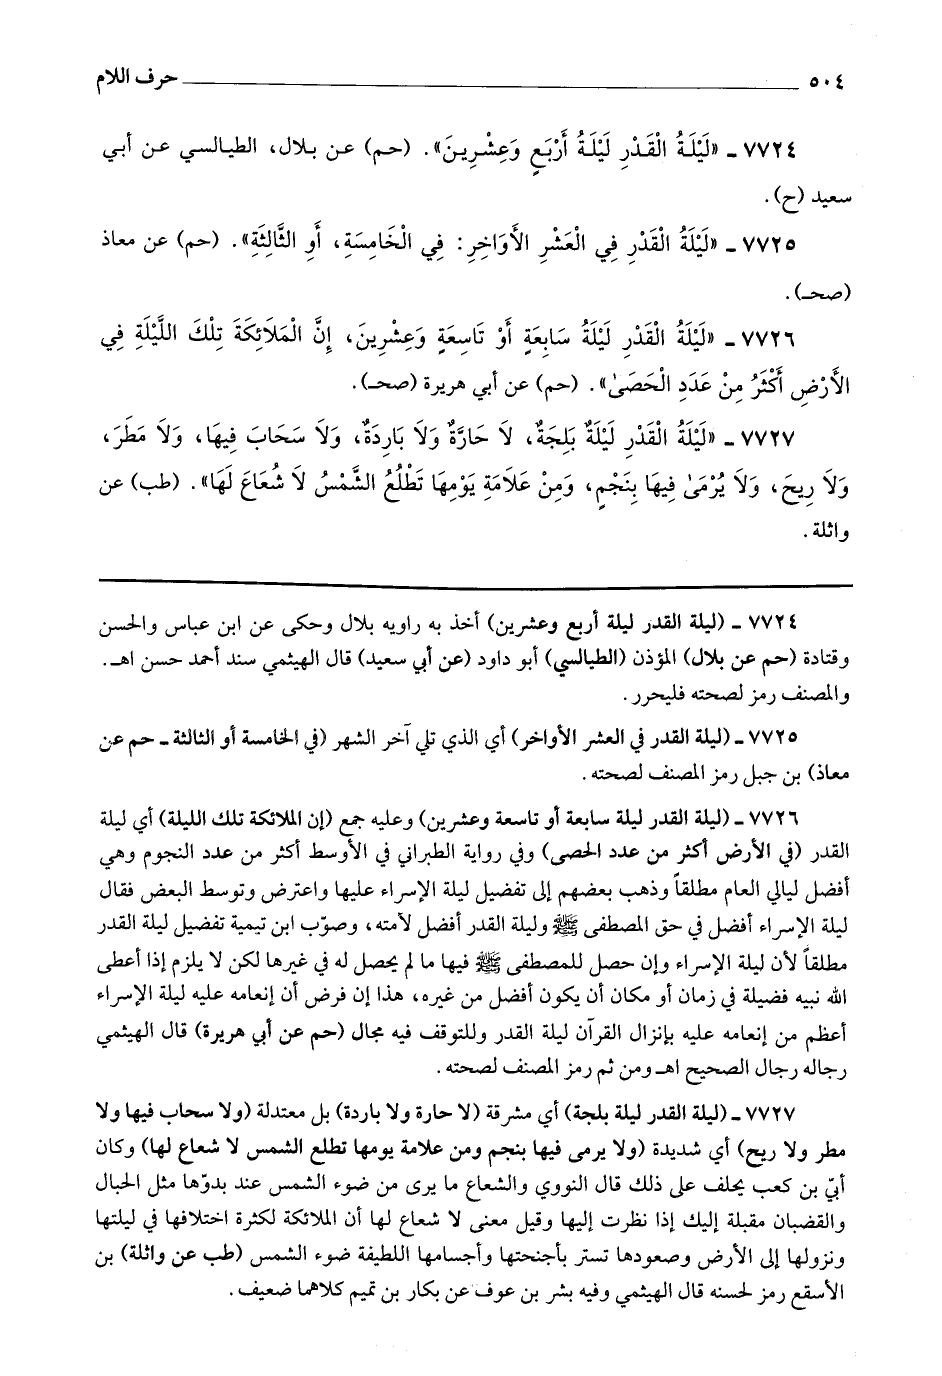 ٥٠٤ حرف اللام
٧٧٢٤ ـ «لَيْلَةُ الْقَدْرِ لَيْلَةُ أَرْبَعٍ وَعِشْرِينَ». (حم) عن بلال، الطيالسي عن أبي
سعيد (ح).
٧٧٢٥ ـ «لَيْلَةُ الْقَدْرِ فِي الْعَشْرِ الأَوَاخِرِ: فِي الْخَامِسَةِ، أَوِ الثَّالِثَةِ». (حم) عن معاذ
(صحـ).
٧٧٢٦ ـ «لَيْلَةُ الْقَدْرِ لَيْلَةُ سَابِعَةٍ أَوْ تَاسِعَةٍ وَعِشْرِينَ، إِنَّ الْمَلَائِكَةَ تِلْكَ اللَّيْلَةِ فِي
الأَرْضِ أَكْثَرُ مِنْ عَدَدِ الْحَصَىٰ». (حم) عن أبي هريرة (صحـ).
٧٧٢٧ ـ «لَيْلَةُ الْقَدْرِ لَيْلَةٌ بَلِجَةٌ، لَا حَارَّةٌ وَلَا بَارِدَةٌ، وَلَا سَحَابَ فِيهَا، وَلَا مَطَرَ،
وَلَا رِيحَ، وَلَا يُرْمَىٰ فِيهَا بِنَجْمٍ، وَمِنْ عَلَامَةِ يَوْمِهَا تَطْلُعُ الشَّمْسُ لَا شُعَاعَ لَهَا». (طب) عن
واثلة.
٧٧٢٤ ـ (ليلة القدر ليلة أربع وعشرين) أخذ به راويه بلال وحكى عن ابن عباس والحسن
وقتادة (حم عن بلال) المؤذن (الطيالسي) أبو داود (عن أبي سعيد) قال الهيثمي سند أحمد حسن اهـ.
والمصنف رمز لصحته فليحرر.
٧٧٢٥ ـ (ليلة القدر في العشر الأواخر) أي الذي تلي آخر الشهر (في الخامسة أو الثالثة ـ حم عن
معاذ) بن جبل رمز المصنف لصحته.
٧٧٢٦ ـ (ليلة القدر ليلة سابعة أو تاسعة وعشرين) وعليه جمع (إن الملائكة تلك الليلة) أي ليلة
القدر (في الأرض أكثر من عدد الحصى) وفي رواية الطبراني في الأوسط أكثر من عدد النجوم وهي
أفضل ليالي العام مطلقاً وذهب بعضهم إلى تفضيل ليلة الإسراء عليها واعترض وتوسط البعض فقال
ليلة الإسراء أفضل في حق المصطفى ﷺ وليلة القدر أفضل لأمته، وصوّب ابن تيمية تفضيل ليلة القدر
مطلقاً لأن ليلة الإسراء وإن حصل للمصطفى ﷺ فيها ما لم يحصل له في غيرها لكن لا يلزم إذا أعطى
الله نبيه فضيلة في زمان أو مكان أن يكون أفضل من غيره، هذا إن فرض أن إنعامه عليه ليلة الإسراء
أعظم من إنعامه عليه بإنزال القرآن ليلة القدر وللتوقف فيه مجال (حم عن أبي هريرة) قال الهيثمي
رجاله رجال الصحيح اهـ ومن ثم رمز المصنف لصحته.
٧٧٢٧ ـ (ليلة القدر ليلة بلجة) أي مشرقة (لا حارة ولا باردة) بل معتدلة (ولا سحاب فيها ولا
مطر ولا ريح) أي شديدة (ولا يرمى فيها بنجم ومن علامة يومها تطلع الشمس لا شعاع لها) وكان
أبيّ بن كعب يحلف على ذلك قال النووي والشعاع ما يرى من ضوء الشمس عند بدوّها مثل الحبال
والقضبان مقبلة إليك إذا نظرت إليها وقيل معنى لا شعاع لها أن الملائكة لكثرة اختلافها في ليلتها
ونزولها إلى الأرض وصعودها تستر بأجنحتها وأجسامها اللطيفة ضوء الشمس (طب عن واثلة) بن
الأسقع رمز لحسنه قال الهيثمي وفيه بشر بن عوف عن بكار بن تميم كلاهما ضعيف.